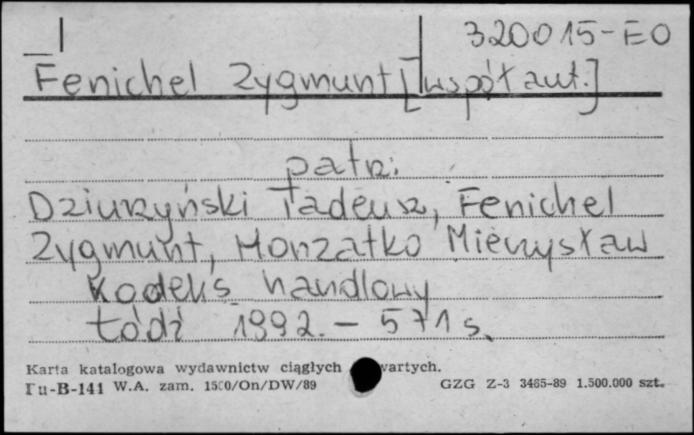 320015-EO
Fenichel Zygmunt [współaut.]
patrz:
Dziurzyński Tadeusz, Fenichel
Zygmunt, Honzatko Mieczysław
Kodeks handlowy
Łódź 1992. - 571 s.
Karta katalogowa wydawnictw ciągłych wartych.
Pu-B-141 W.A. zam. 1500/On/DW/89 GZG Z-3 3465-89 1.500.000 szt.